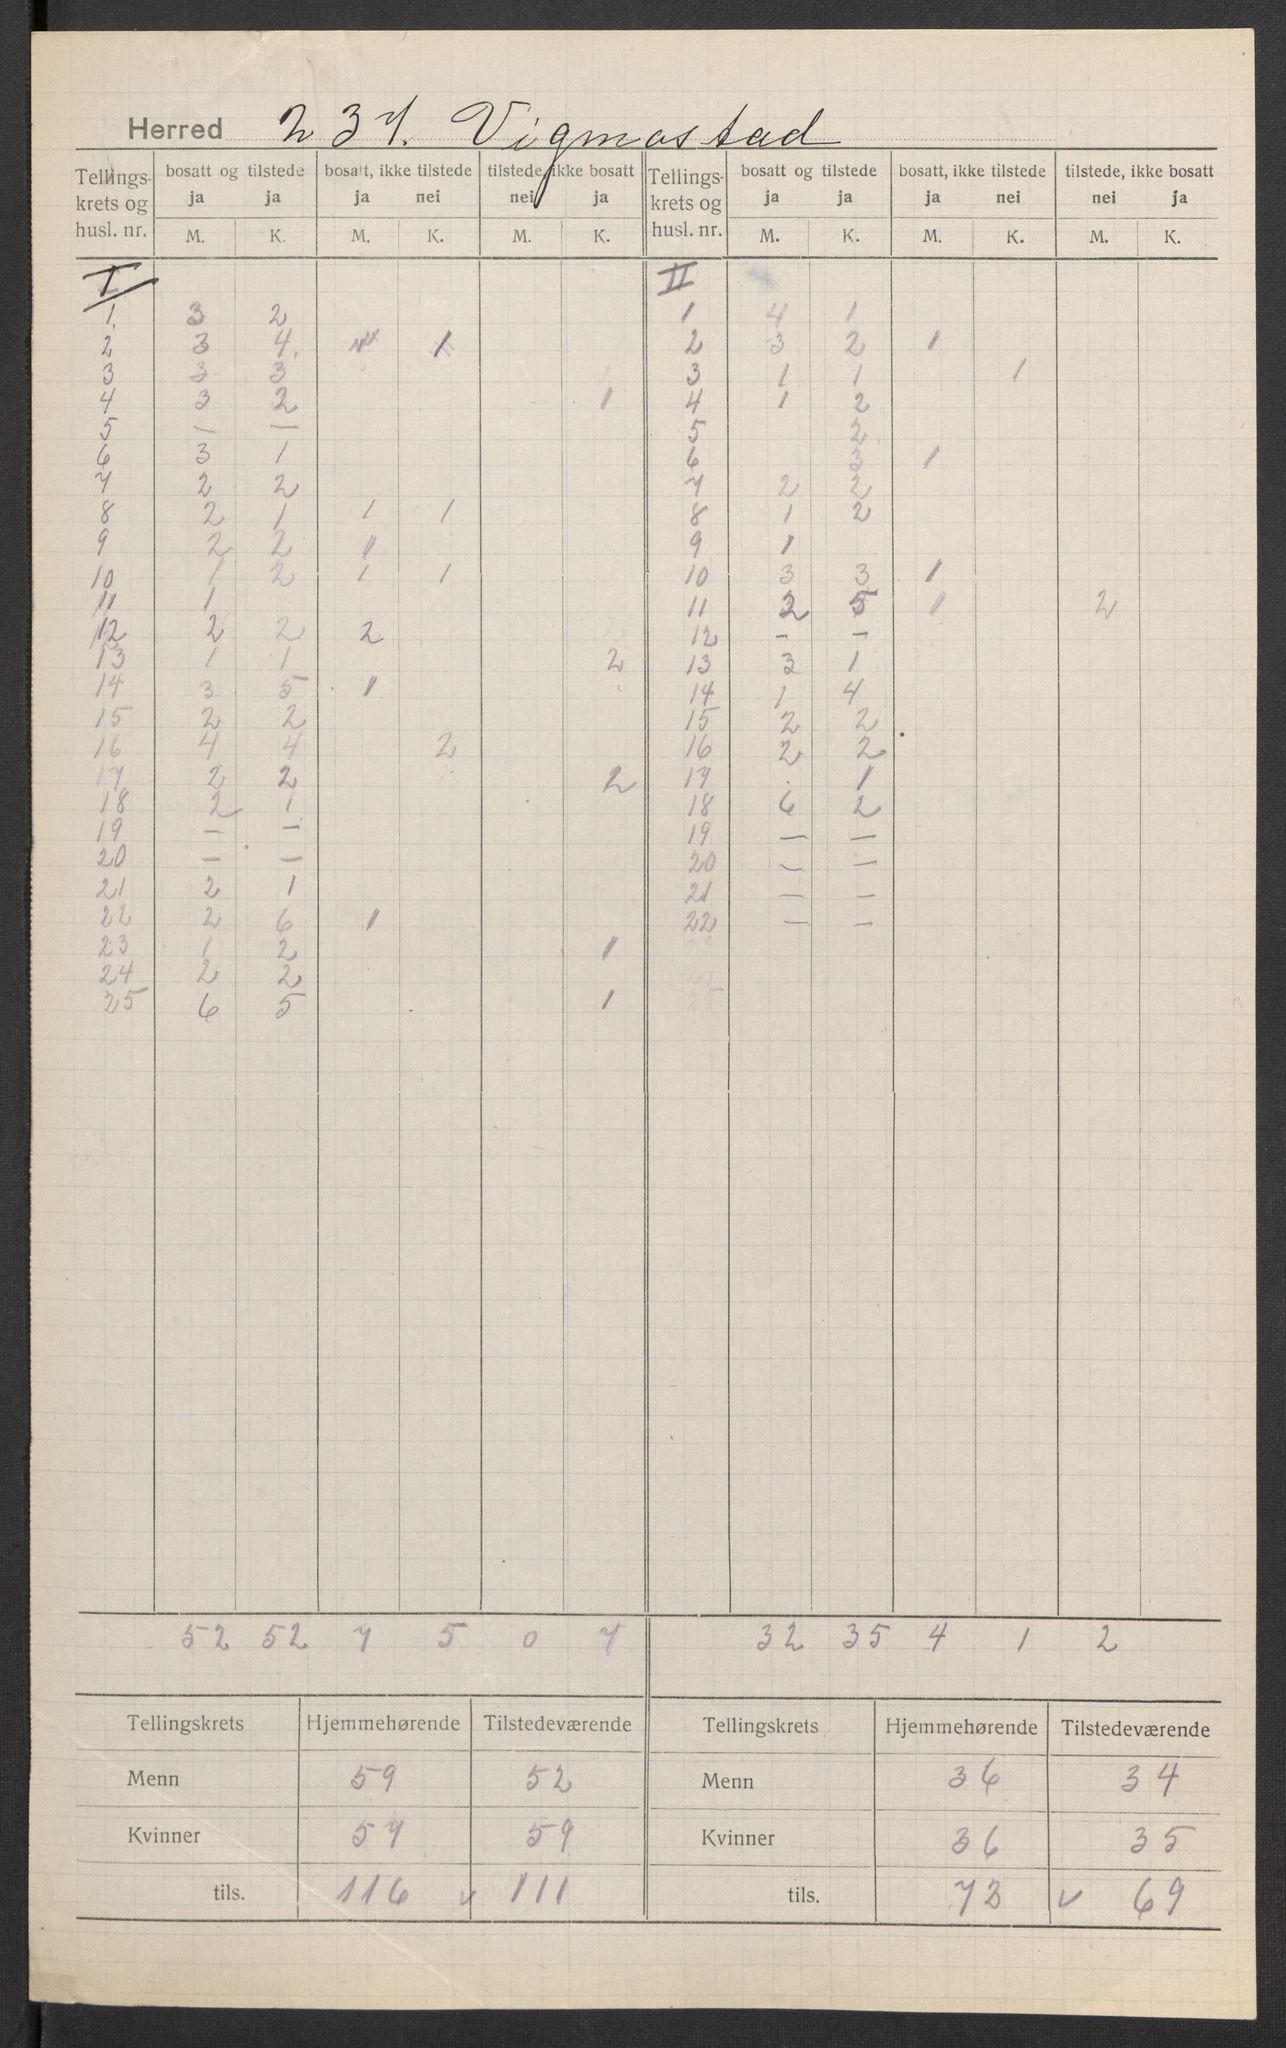 Herred 237. Vigmostad
Tellings- krets og husl. nr. | bosatt og tilstede ja ja | bosatt, ikke tilstede ja nei | tilstede, ikke bosatt nei ja | Tellings- krets og husl. nr. | bosatt og tilstede ja ja | bosatt, ikke tilstede ja nei | tilstede, ikke bosatt nei ja
M. K. M. K. M. K. M. K. M. K. M. K.
I II
1. 3 2 1 4 1
2 3 4. 1 2 3 2 1
3 3 3 3 1 1 1
4 3 2 1 4 1 2
5 — — 5 2
6 3 1 6 3 1
7 2 2 7 2 2
8 2 1 1 1 8 1 2
9 2 2 1 9 1
10 1 2 1 1 10 3 3 1
11 1 11 2 5 1 2
12 2 2 2 12 — —
13 1 1 2 13 3 1
14 3 5 1 14 1 4
15 2 2 15 2 2
16 4 4 2 16 2 2
17 2 2 2 17 . 1
18 2 1 18 6 2
19 — — 19 — —
20 — — 20 — —
21 2 1 21 — —
22 2 6 1 22 — —
23 1 2 1 23
24 2 2 24
25 6 5 1 25
52 52 7 5 0 7 32 35 4 1 2
Tellingskrets Hjemmehørende Tilstedeværende Tellingskrets Hjemmehørende Tilstedeværende
Menn 59 52 Menn 36 34
Kvinner 57 59 Kvinner 36 35
tils. 116 v 111 tils. 72 v 69